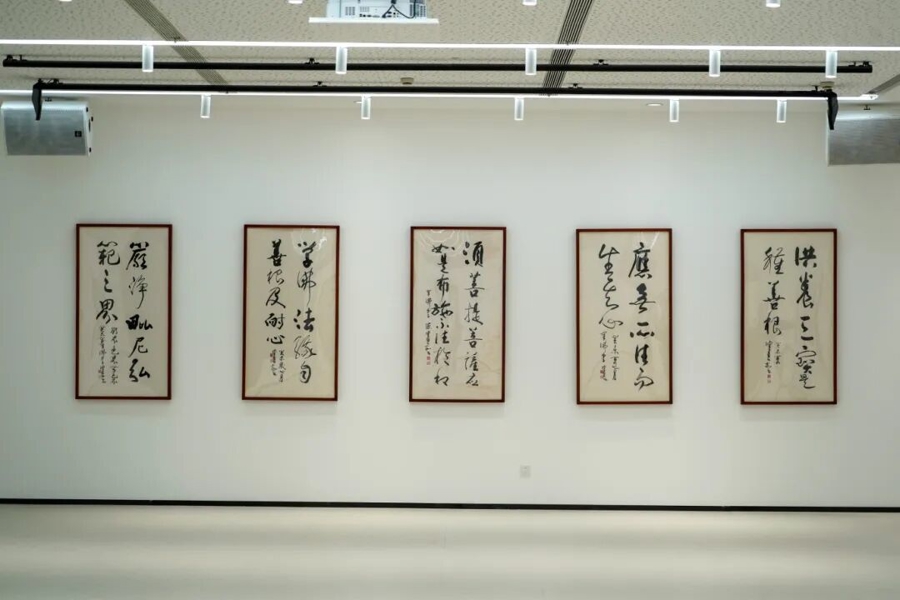 嚴淨毗尼弘
範三界
学佛法緣自
善根及耐心
須菩提菩薩應
如是布施不住於相
應無所住而
生其心
供養三寶是
種善根